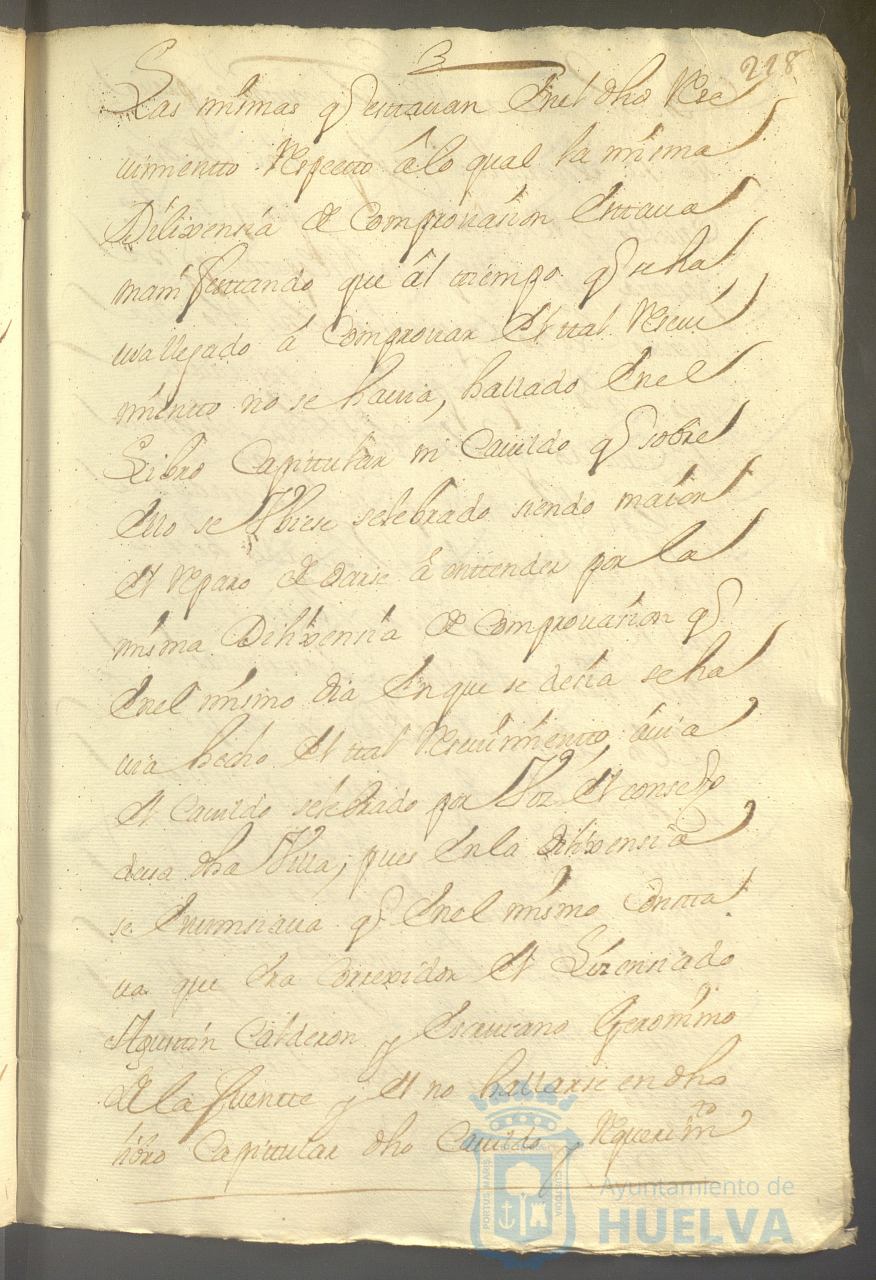 3
218
Las mismas q esttavan Enel dho Rese
vimientto Respectto â lo qual la misma
Dilixensia de Comprovasion Esttava
manifesttando que âl tiempo q se ha
via llegado â Comprovar El ttal Resevi
mientto no se havia, hallado Enel
Libro Capittular ni Cavildo q sobre
Ello se Vbiese selebrado siendo maior
El Reparo de Darse â enttender por la
misma Dilixensia de Comprovasion q
Enel mismo dia En que se desia se ha
via hecho El ttal Resevimientto, avia
El Cavildo selebrado por Voz El consejo
desa dha Villa, pues En la dilixensia
se Enunsiava q Enel mismo Constta
va que Era Correxidor El Lizensiado
Agusttin Calderon y Escrivano Geronimo
de la fuentte y El no hallarse en dho
libro Capittular dho Cavildo y Requerimto
Ayuntamiento de
HUELVA
PORTUS MARIS
CUSTODIA